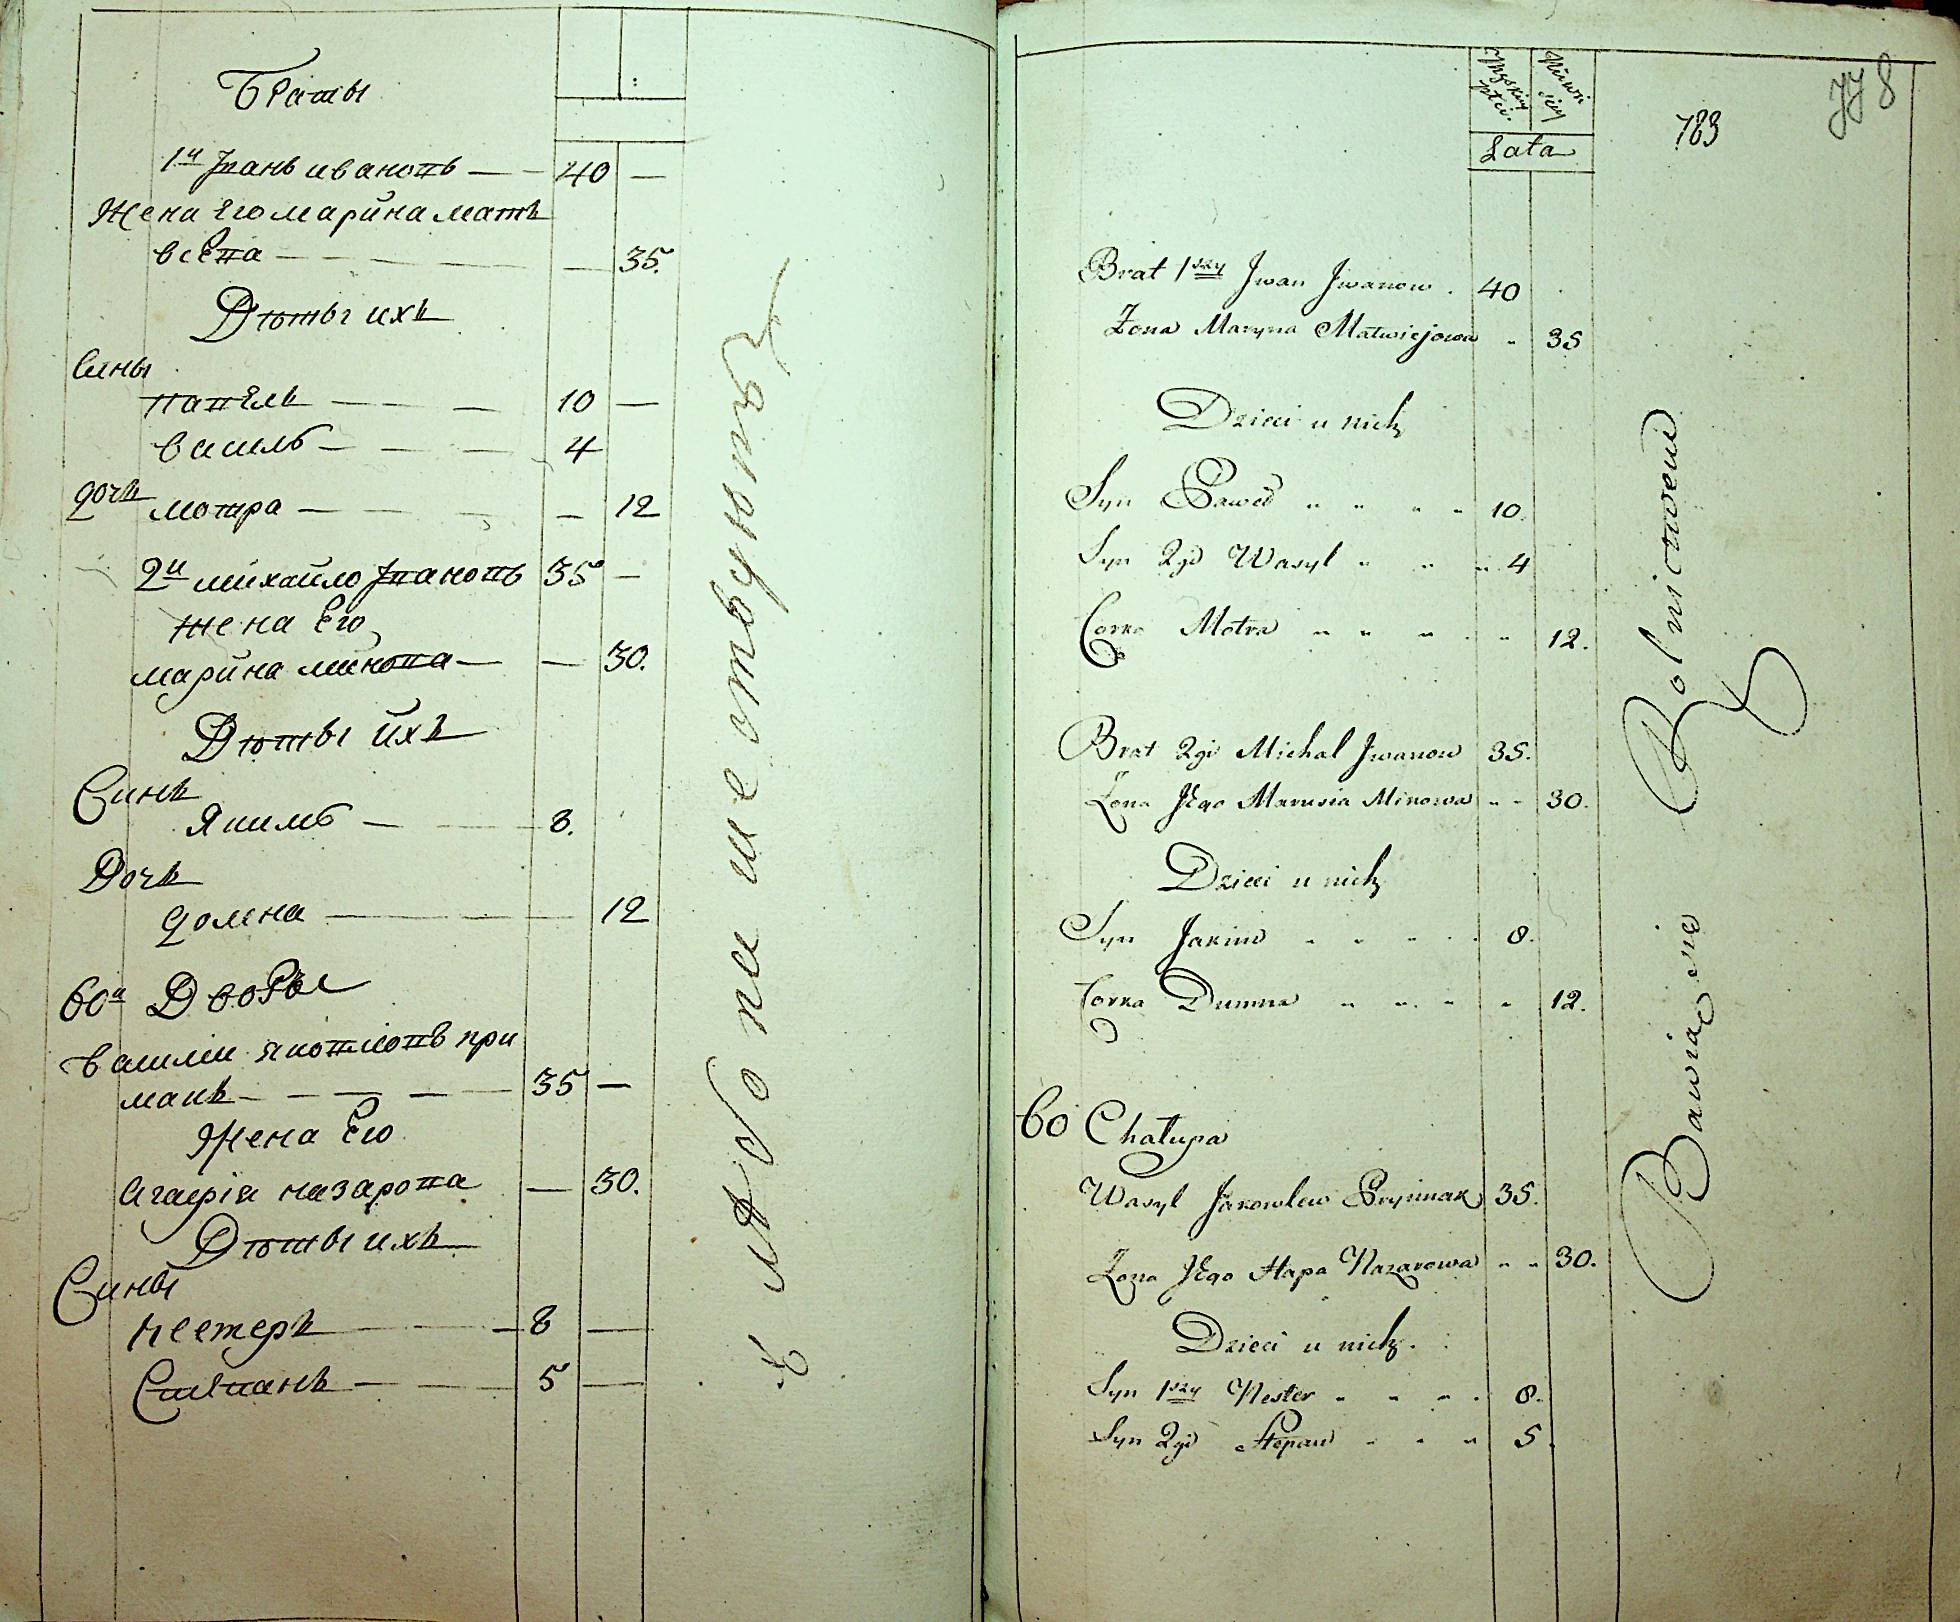 Браты
1й Іванъ ивановъ — — 40 —
Жена его марина матъ
вѣева — — — — — 35.
Дѣты ихъ
Сины
павелъ — — — 10 —
василь — — — 4
дочъ мотра — — — — 12
2й михайло Івановъ 35 —
жена Его
марина минова — — 30.
Дѣты ихъ
Синъ
Якимъ — — — 8.
Дочъ
домна — — — 12
60й Дворъ
василій яковлювъ при
макъ — — — — 35 —
Жена Его
Агафія назарова — 30.
Дѣты ихъ
Сины
нестеръ — — — 8 —
Степанъ — — — 5 —
Męzkiey płci. Niewi
Lata
783
8
Brat 1szy Jwan Jwanow . 40
Żona Maryna Matwiejowa „ 35
Dzieci u nich
Syn Paweł „ „ „ „ 10.
Syn 2gi Wasyl „ „ „ 4
Corka Motra „ „ „ „ 12.
Brat 2gi Michal Jwanow 35.
Żona JEgo Marusia Minowa „ „ 30.
Dzieci u nich
Syn Jakim „ „ „ „ 8.
Corka Dumna „ „ „ „ 12.
60 Chałupa
Wasyl Jakowlew Prymak 35.
Żona JEgo Hapa Nazarowa „ „ 30.
Dzieci u nich.
Syn 1szy Nester „ „ „ „ 8.
Syn 2gi Stepan „ „ „ 5.
Bawią się Rolnictwem